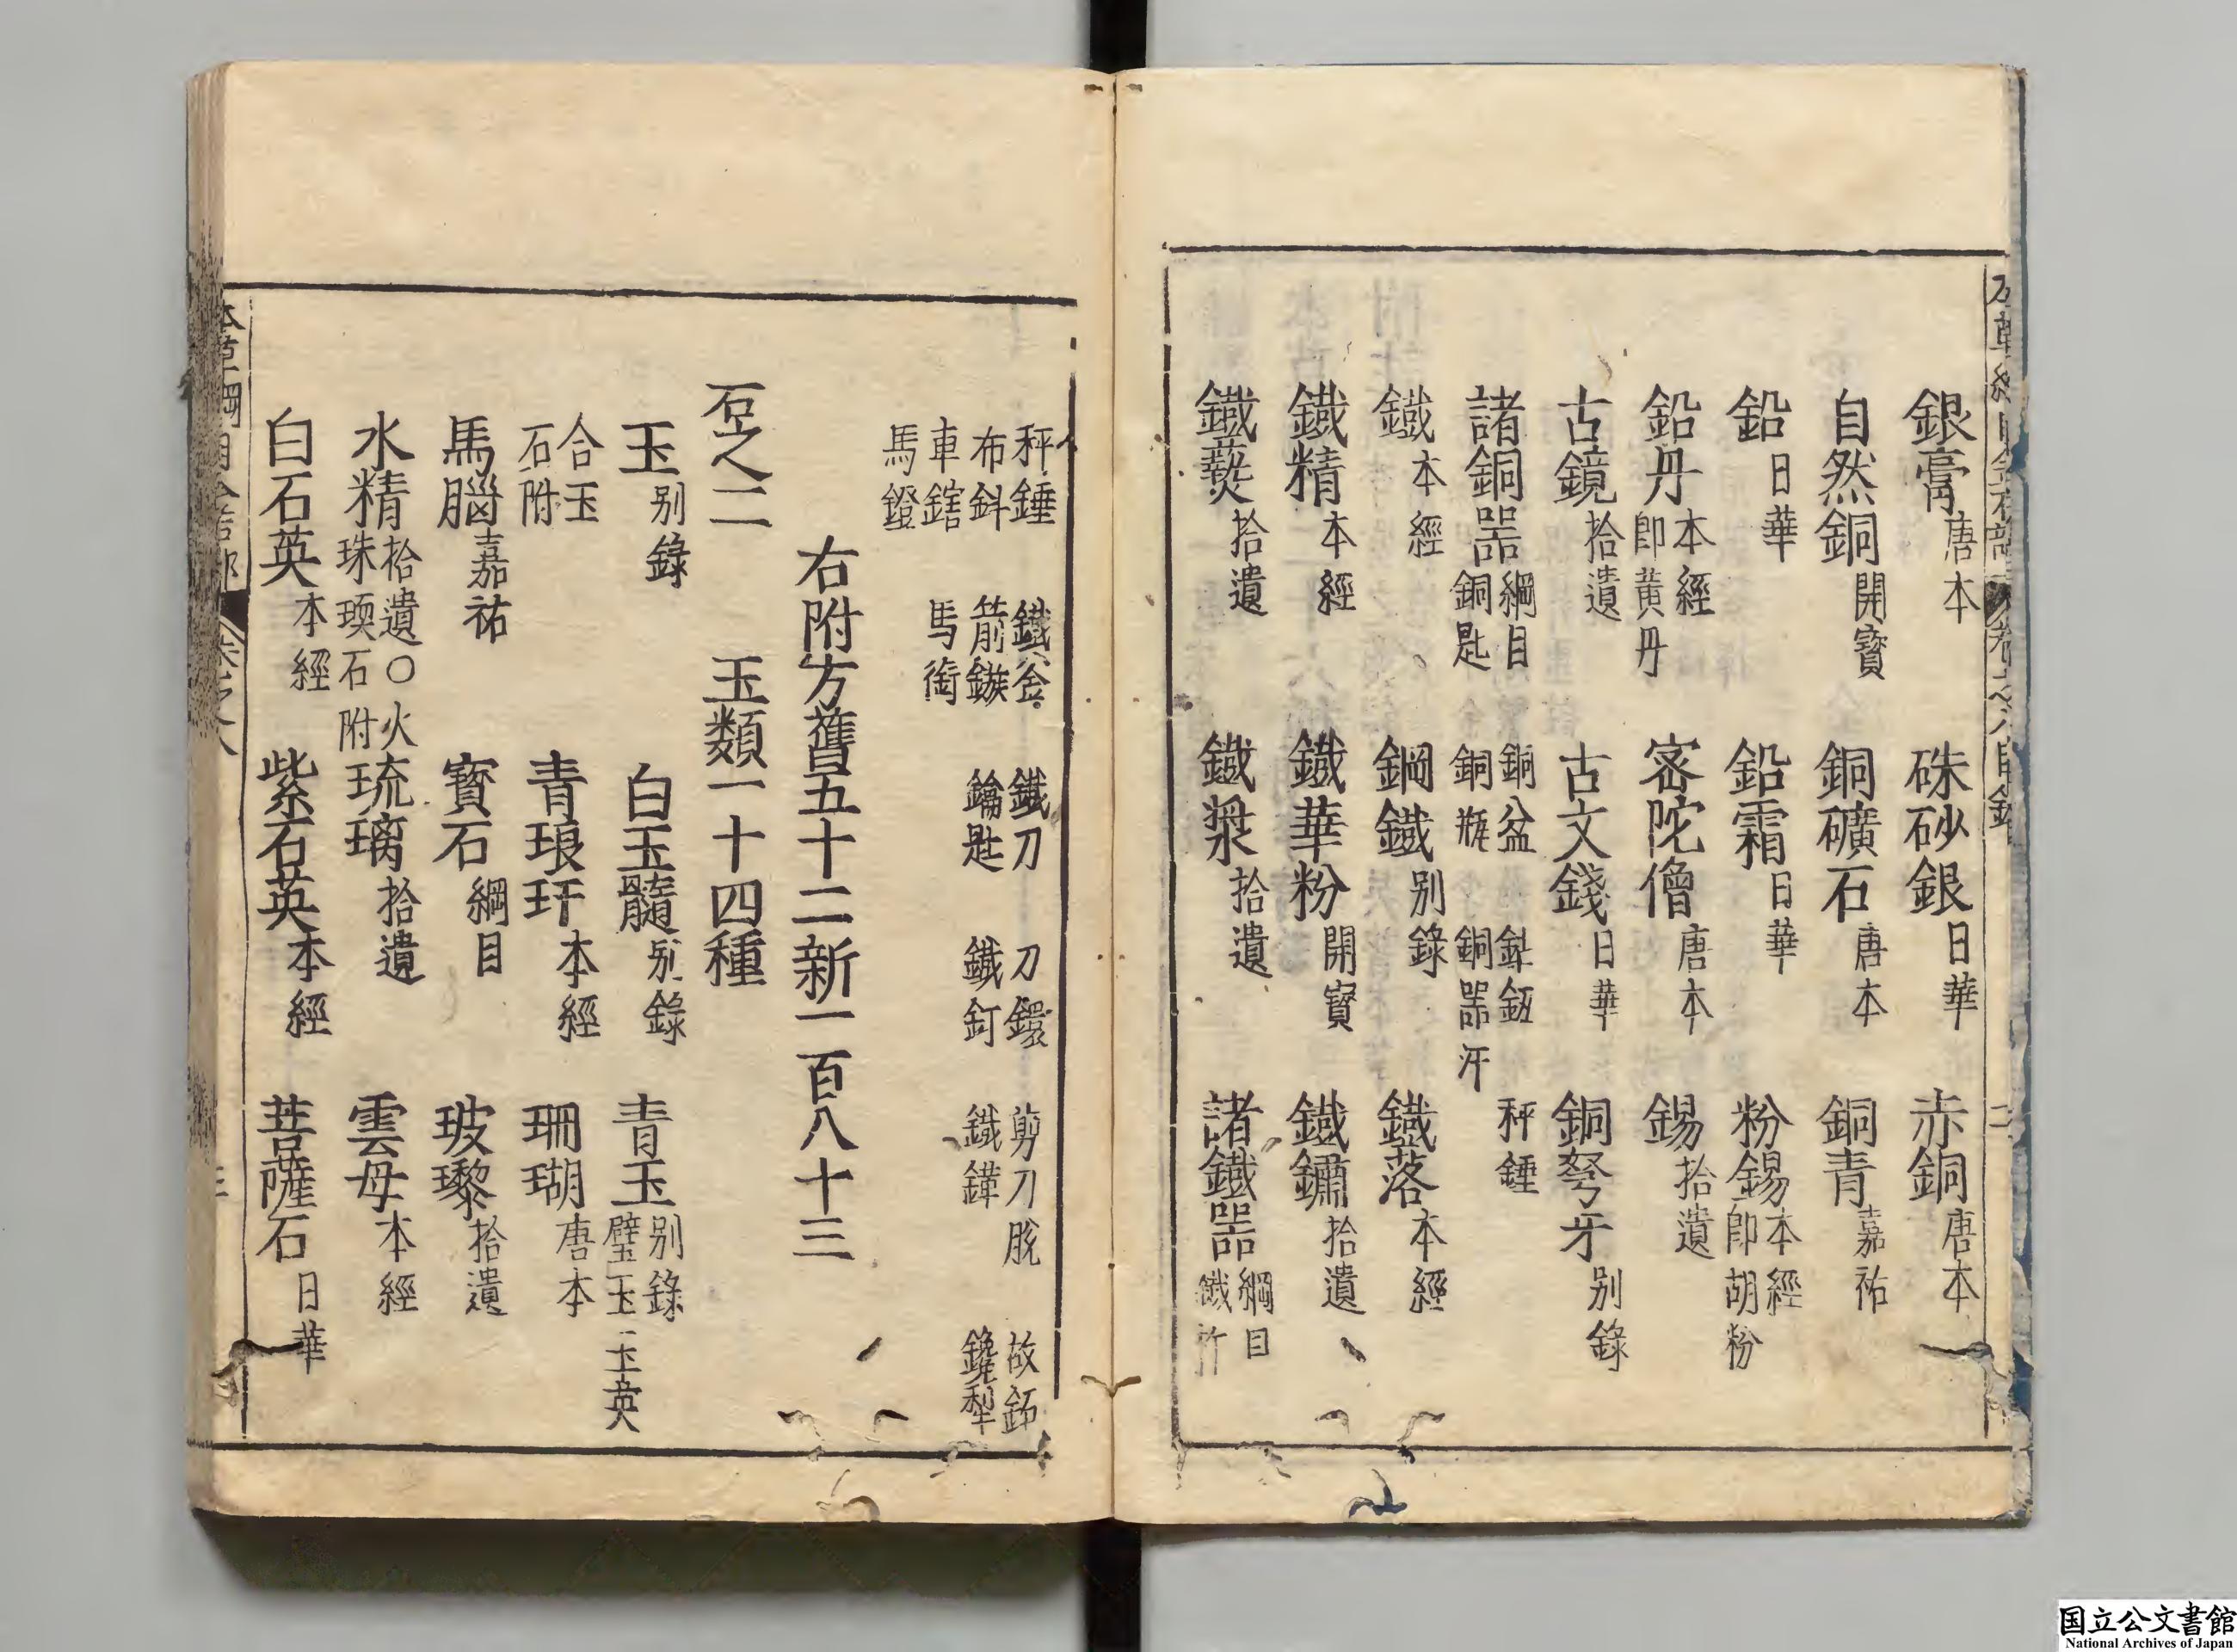 銀膏唐本 硃砂銀日華 赤銅唐本
自然銅開寶 銅礦石唐本 銅青嘉祐
鉛日華 鉛霜日華 粉錫本經即胡粉
鉛丹本經即黃丹 密陀僧唐本 錫拾遺
古鏡拾遺 古文錢日華 銅弩牙别錄
諸銅器綱目 銅盆 秤錘
銅匙 銅瓶 銅器汗
鐵本經 鋼鐵别錄 鐵落本經
鐵精本經 鐵華粉開寶 鐵鏽拾遺
鐵爇拾遺 鐵漿拾遺 諸鐵器綱目鐵
秤錘 鐵斧 鐵刀 刀鐶 剪刀股 故鋸
布針 箭鏃 鑰匙 鐵釘 鐵鏵 犁
車轄 馬銜
馬鐙
右附方舊五十二新一百八十三
石之二 玉類一十四種
玉别錄 白玉髓别錄 青玉别錄璧玉玉英
合玉石附 青琅玕本經 珊瑚唐本
馬腦嘉祐 寶石綱目 玻瓈拾遺
水精拾遺○火珠瑌石附 琉璃拾遺 雲母本經
白石英本經 紫石英本經 菩薩石日華
国立公文書館
National Archives of Japan